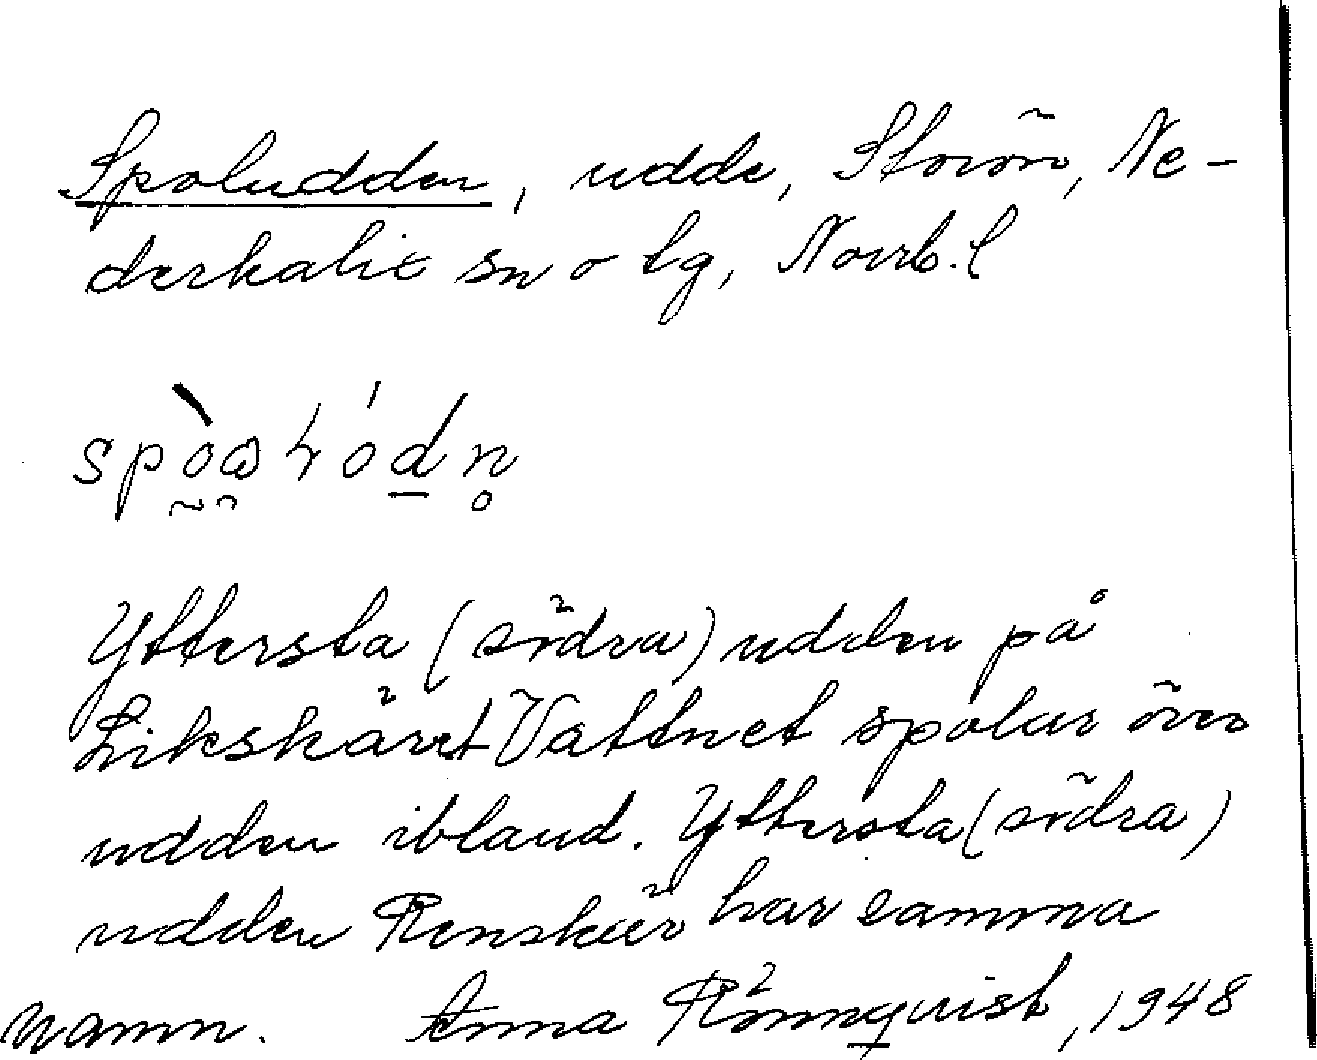 Spoludden, udde, Storön, Ne-
derkalix sn o tg, Norrb. l
Yttersta (södra) udden på
Likskäret Vattnet spolar över
udden ibland. Yttersta (södra)
udden Renskär har samma
namn. Anna Rönnquist, 1948